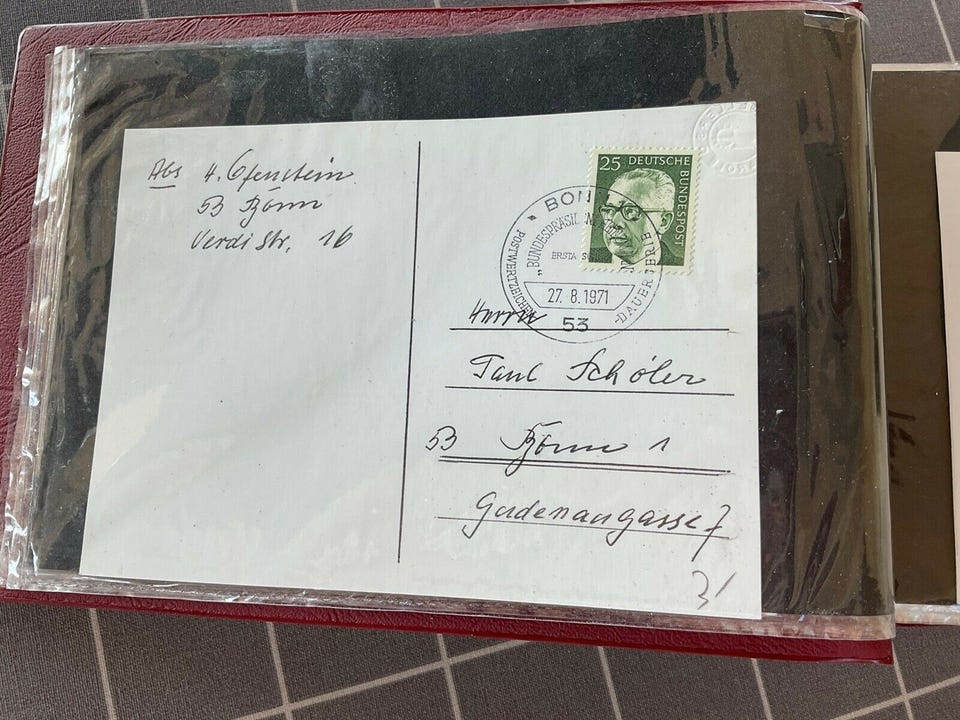 Abs H. Ofenstein
53 Bonn
Verdistr. 16
25 DEUTSCHE BUNDESPOST
BONN
POSTWERTZEICHEN -DAUERSERIE
„BUNDESPRÄSIDENT
ERSTA
27.8.1971
53
Herrn
Paul Schöler
53 Bonn 1
Gudenaugasse 7
31